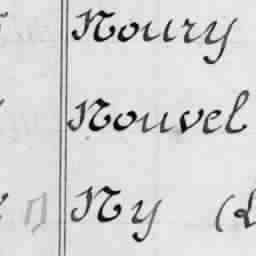 Noury
Nouvel
Ny (